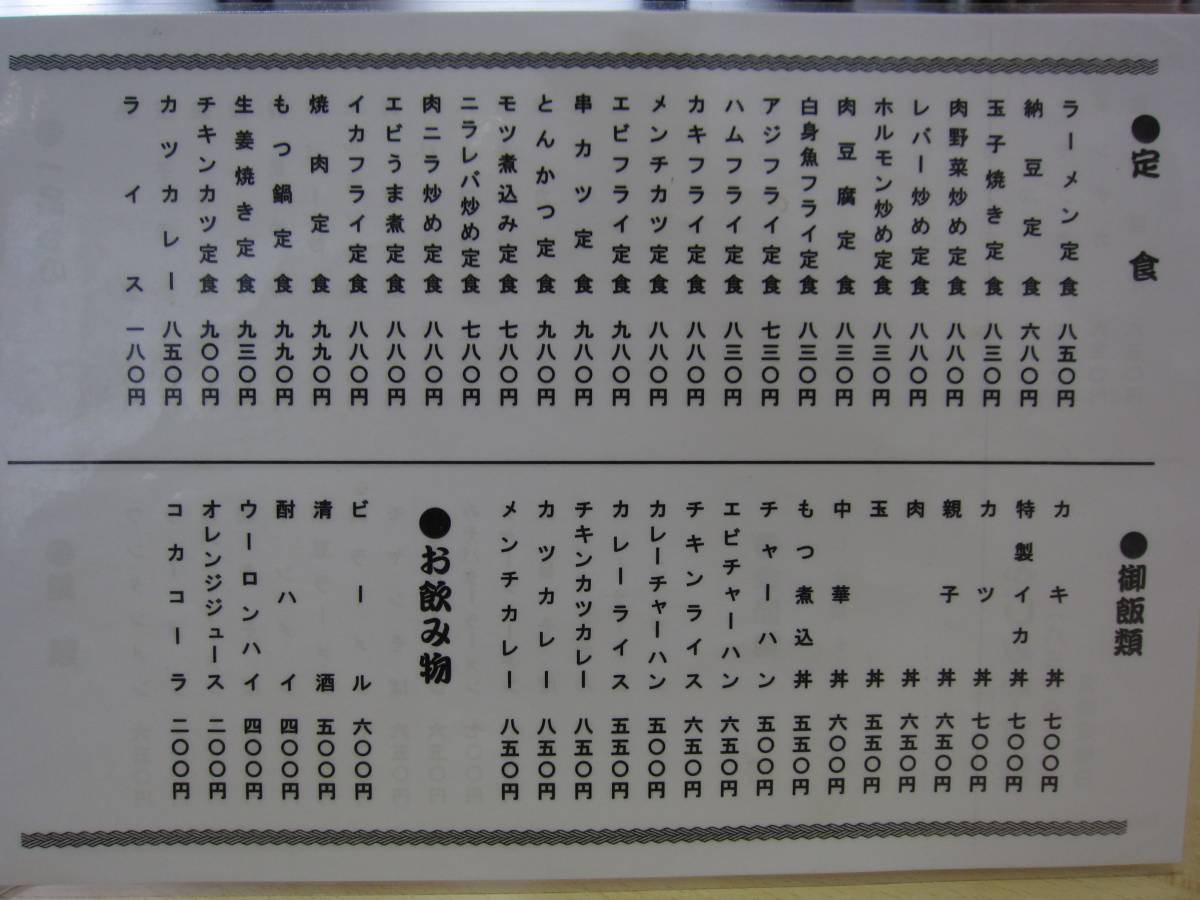 ●定食
ラーメン定食 八五〇円
納豆定食 六八〇円
玉子焼き定食 八三〇円
肉野菜炒め定食 八八〇円
レバー炒め定食 八八〇円
ホルモン炒め定食 八三〇円
肉豆腐定食 八三〇円
白身魚フライ定食 八三〇円
アジフライ定食 七三〇円
ハムフライ定食 八三〇円
カキフライ定食 八八〇円
メンチカツ定食 八八〇円
エビフライ定食 九八〇円
串カツ定食 九八〇円
とんかつ定食 九八〇円
モツ煮込み定食 七八〇円
ニラレバ炒め定食 七八〇円
肉ニラ炒め定食 八八〇円
エビうま煮定食 八八〇円
イカフライ定食 八八〇円
焼肉定食 九九〇円
もつ鍋定食 九九〇円
生姜焼き定食 九三〇円
チキンカツ定食 九〇〇円
カツカレー 八五〇円
ライス 一八〇円
●御飯類
カキ丼 七〇〇円
特製イカ丼 七〇〇円
カツ丼 七〇〇円
親子丼 六五〇円
肉丼 六五〇円
玉丼 五五〇円
中華丼 六〇〇円
もつ煮込丼 五五〇円
チャーハン 五〇〇円
エビチャーハン 六五〇円
チキンライス 六五〇円
カレーチャーハン 五〇〇円
カレーライス 五五〇円
チキンカツカレー 八五〇円
カツカレー 八五〇円
メンチカレー 八五〇円
●お飲み物
ビール 六〇〇円
清酒 五〇〇円
酎ハイ 四〇〇円
ウーロンハイ 四〇〇円
オレンジジュース 二〇〇円
コカコーラ 二〇〇円